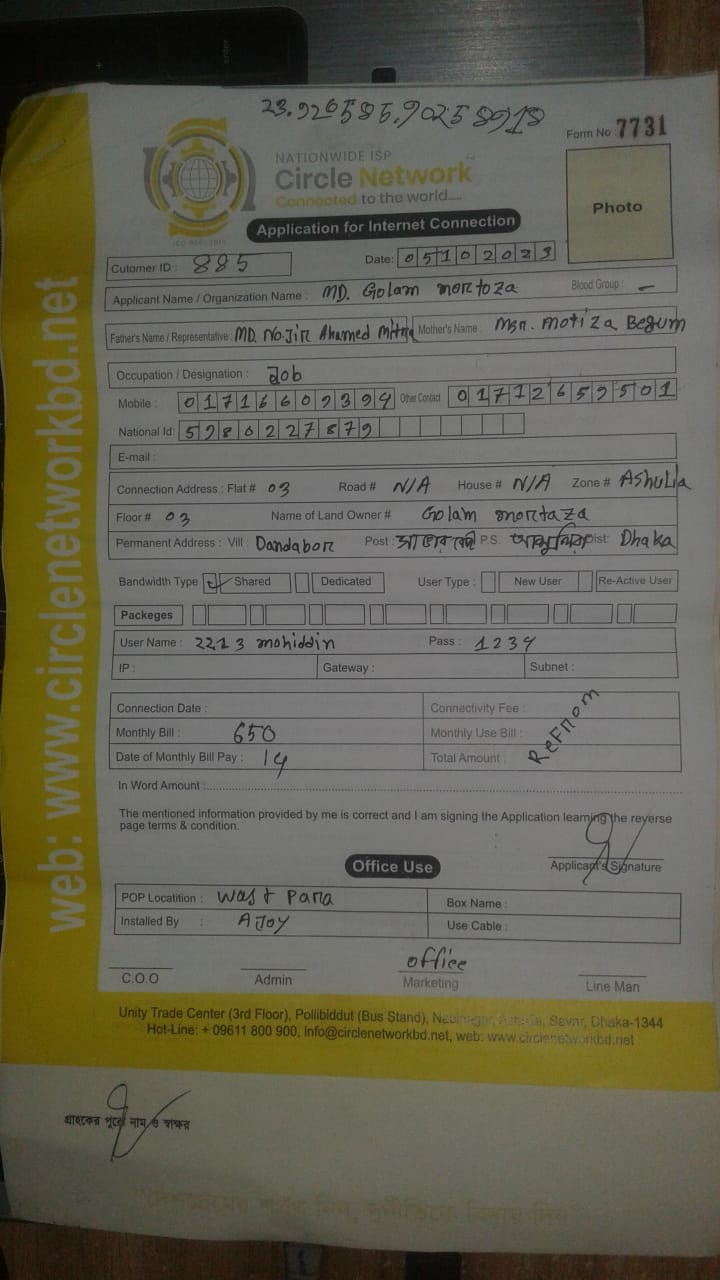 23.926585,90258918
Form No 7731
NATIONWIDE ISP
Circle Network
Connected to the world.....
Photo
Application for Internet Connection
Cutomer ID : 885 Date: 05102023
Applicant Name / Organization Name : MD. Golam mortoza Blood Group : –
Father's Name / Representative : MD. No.Jir Ahamed Mother's Name : Motiza Begum
Occupation / Designation : Job
Mobile : 01716609394 Other Contact 01712659501
National Id: 5980227879
E-mail :
Connection Address : Flat # 03 Road # N/A House # N/A Zone # Ashulia
Floor # 03 Name of Land Owner # Golam mortaza
Permanent Address : Vill : Dandabor Post : P.S. Dist: Dhaka
Bandwidth Type ✓ Shared Dedicated User Type : New User Re-Active User
Packeges
User Name : 2213 mohiddin Pass : 1234
IP : Gateway : Subnet :
Connection Date : Connectivity Fee :
Monthly Bill : 650 Monthly Use Bill :
Date of Monthly Bill Pay : 14 Total Amount :
ReFrom
In Word Amount :
The mentioned information provided by me is correct and I am signing the Application learning the reyerse
page terms & condition.
Applicant's Signature
Office Use
POP Locatition : Wast Para Box Name :
Installed By : AJoy Use Cable :
office
C.O.O Admin Marketing Line Man
Unity Trade Center (3rd Floor), Pollibiddut (Bus Stand), Savar, Dhaka-1344
Hot-Line: + 09611 800 900, info@circlenetworkbd.net, web: www.circlenetworkbd.net
web: www.circlenetworkbd.net
গ্রাহকের পুরো নাম ও স্বাক্ষর